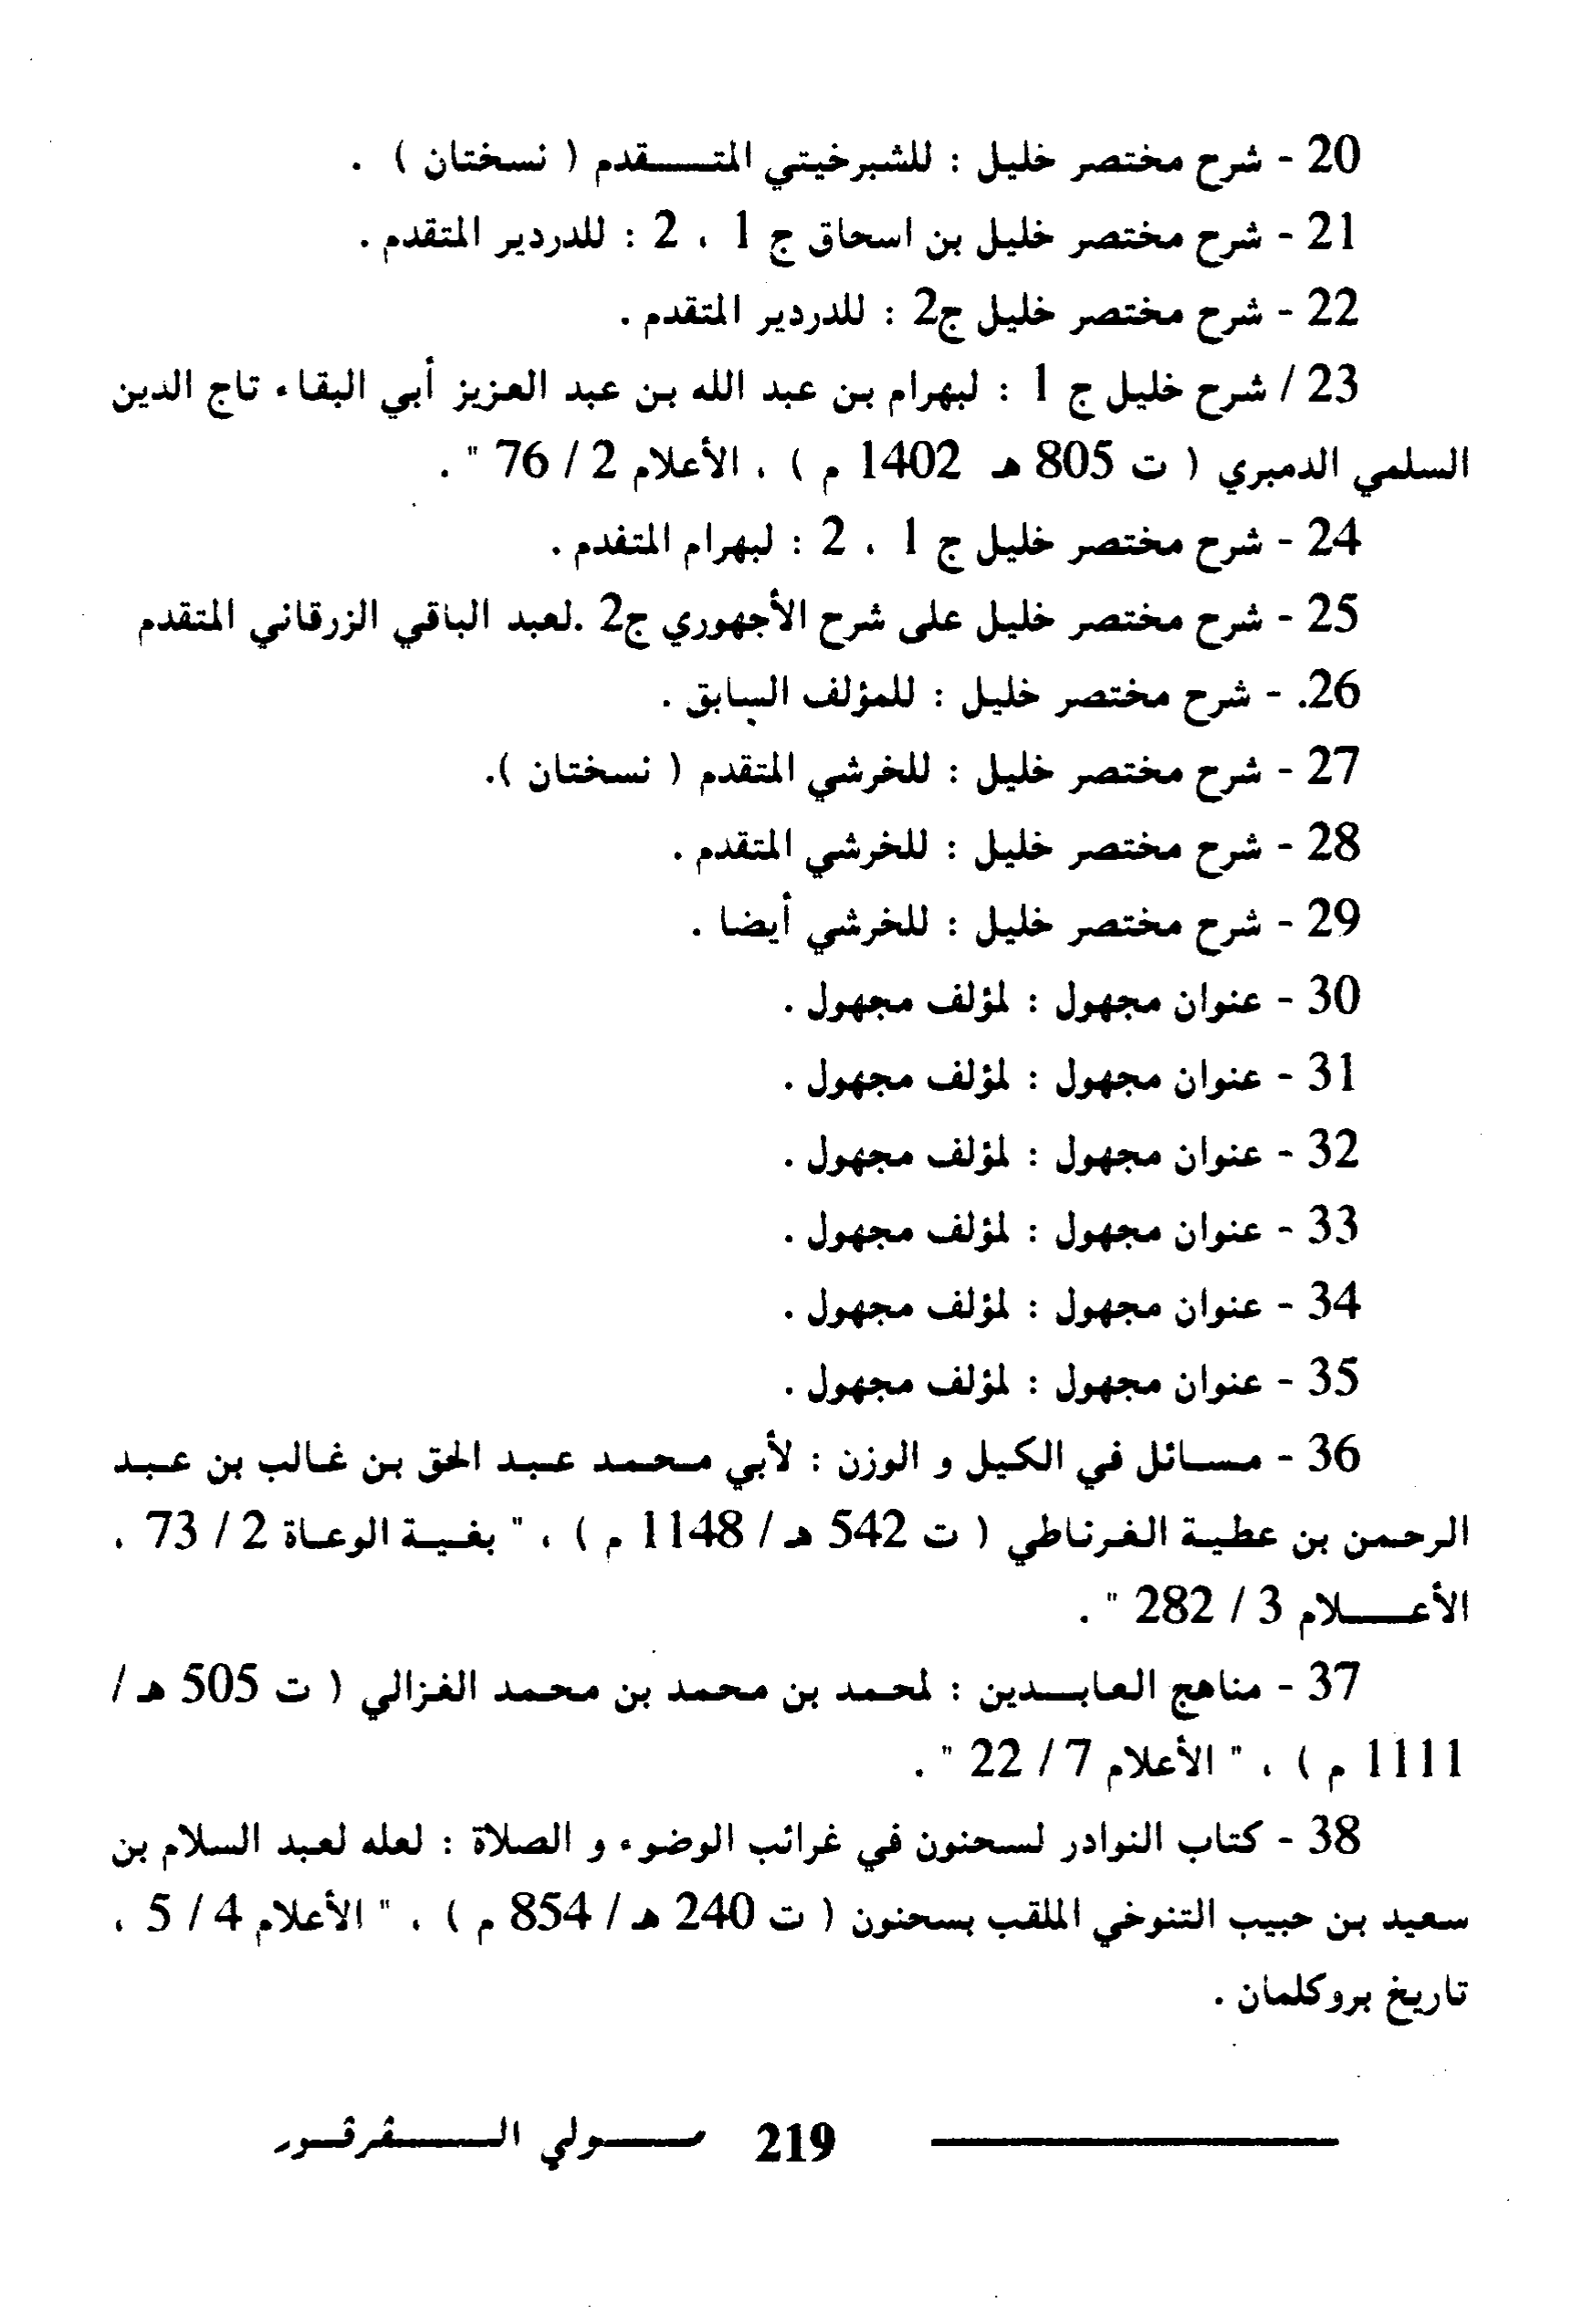 20 - شرح مختصر خليل : للشبرخيتي المتـــقدم ( نسختان ) .
21 - شرح مختصر خليل بن اسحاق ج 1 ، 2 : للدردير المتقدم .
22 - شرح مختصر خليل ج2 : للدردير المتقدم .
23 / شرح خليل ج 1 : لبهرام بن عبد الله بن عبد العزيز أبي البقاء تاج الدين
السلمي الدمبري ( ت 805 هـ 1402 م ) ، الأعلام 2 / 76 " .
24 - شرح مختصر خليل ج 1 ، 2 : لبهرام المتفدم .
25 - شرح مختصر خليل على شرح الأجهوري ج2 .لعبد الباقي الزرقاني المتقدم
26. - شرح مختصر خليل : للمؤلف السابق .
27 - شرح مختصر خليل : للخرشي المتقدم ( نسختان ).
28 - شرح مختصر خليل : للخرشي المتقدم .
29 - شرح مختصر خليل : للخرشي أيضا .
30 - عنوان مجهول : لمؤلف مجهول .
31 - عنوان مجهول : لمؤلف مجهول .
32 - عنوان مجهول : لمؤلف مجهول .
33 - عنوان مجهول : لمؤلف مجهول .
34 - عنوان مجهول : لمؤلف مجهول .
35 - عنوان مجهول : لمؤلف مجهول .
36 - مسائل في الكيل و الوزن : لأبي محمد عبد الحق بن غالب بن عبد
الرحمن بن عطية الغرناطي ( ت 542 هـ / 1148 م ) ، " بغية الوعاة 2 / 73 ،
الأعـــلام 3 / 282 " .
37 - مناهج العابـدين : لمحمد بن محمد بن محمد الغزالي ( ت 505 هـ /
1111 م ) ، " الأعلام 7 / 22 " .
38 - كتاب النوادر لسحنون في غرائب الوضوء و الصلاة : لعله لعبد السلام بن
سعيد بن حبيب التنوخي الملقب بسحنون ( ت 240 هـ / 854 م ) ، " الأعلام 4 / 5 ،
تاريخ بروكلمان .
219 مـــولي الـــقرقور